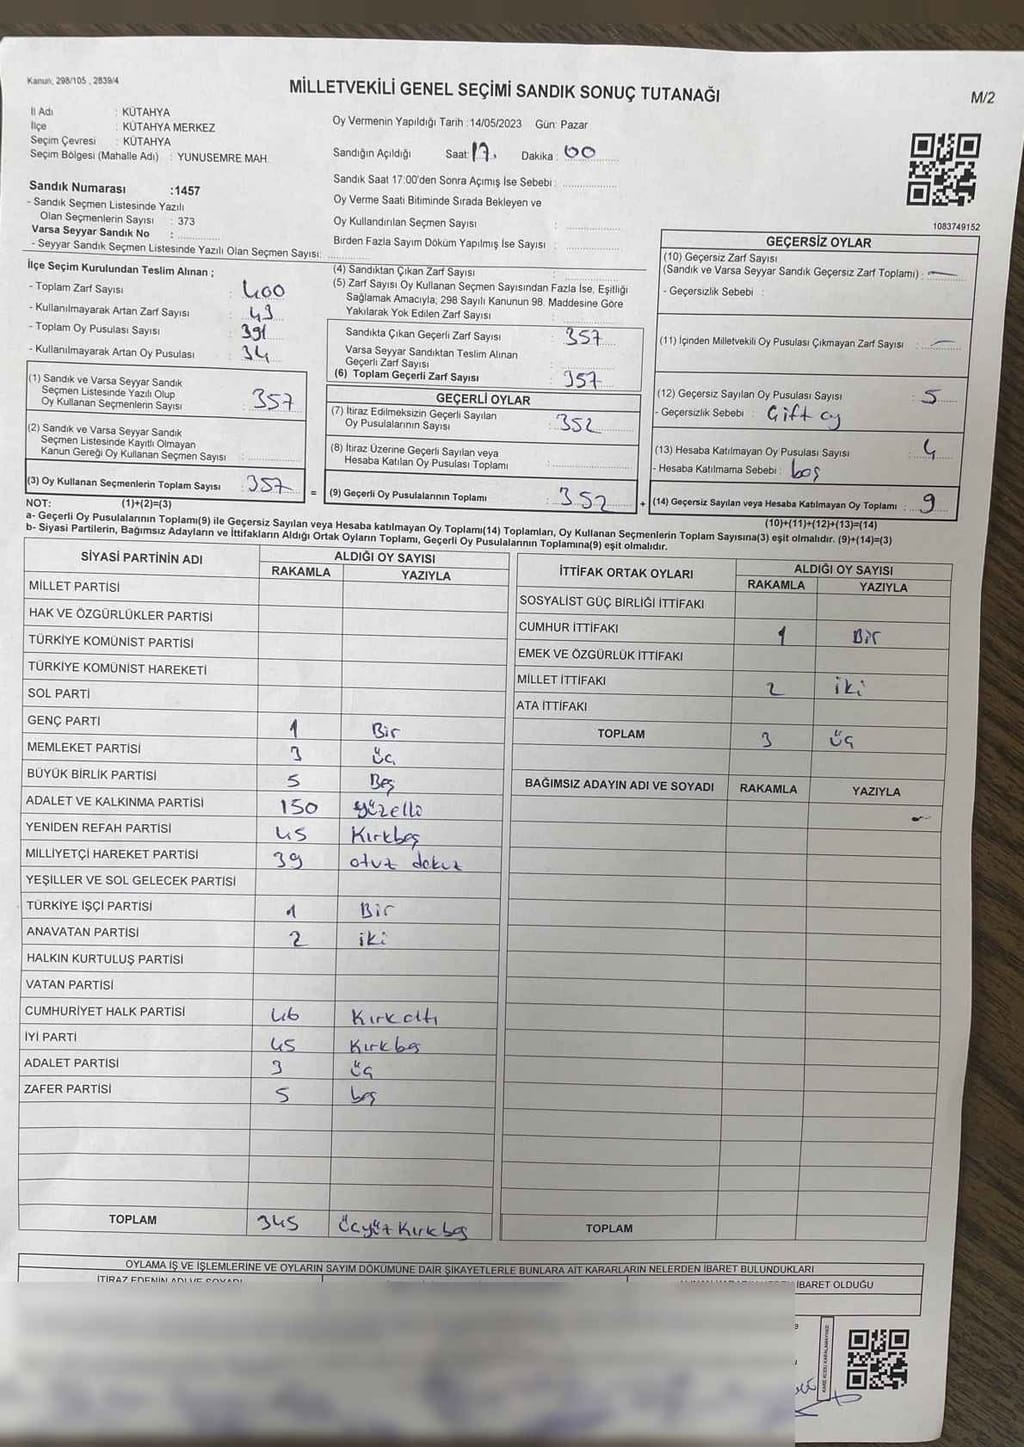 Kanun; 298/105 , 2839/4
MİLLETVEKİLİ GENEL SEÇİMİ SANDIK SONUÇ TUTANAĞI
M/2
İl Adı : KÜTAHYA
İlçe : KÜTAHYA MERKEZ
Seçim Çevresi : KÜTAHYA
Seçim Bölgesi (Mahalle Adı) : YUNUSEMRE MAH.
Sandık Numarası :1457
- Sandık Seçmen Listesinde Yazılı
Olan Seçmenlerin Sayısı : 373
Varsa Seyyar Sandık No :
- Seyyar Sandık Seçmen Listesinde Yazılı Olan Seçmen Sayısı:
Oy Vermenin Yapıldığı Tarih :14/05/2023 Gün: Pazar
Sandığın Açıldığı Saat: 17. Dakika: 00
Sandık Saat 17:00'den Sonra Açımış İse Sebebi :
Oy Verme Saati Bitiminde Sırada Bekleyen ve
Oy Kullandırılan Seçmen Sayısı :
Birden Fazla Sayım Döküm Yapılmış İse Sayısı :
1083749152
İlçe Seçim Kurulundan Teslim Alınan ;
- Toplam Zarf Sayısı : 400
- Kullanılmayarak Artan Zarf Sayısı : 43
- Toplam Oy Pusulası Sayısı : 391
- Kullanılmayarak Artan Oy Pusulası : 34
(1) Sandık ve Varsa Seyyar Sandık
Seçmen Listesinde Yazılı Olup
Oy Kullanan Seçmenlerin Sayısı : 357
(2) Sandık ve Varsa Seyyar Sandık
Seçmen Listesinde Kayıtlı Olmayan
Kanun Gereği Oy Kullanan Seçmen Sayısı :
(3) Oy Kullanan Seçmenlerin Toplam Sayısı : 357
(4) Sandıktan Çıkan Zarf Sayısı :
(5) Zarf Sayısı Oy Kullanan Seçmen Sayısından Fazla İse, Eşitliği
Sağlamak Amacıyla, 298 Sayılı Kanunun 98. Maddesine Göre
Yakılarak Yok Edilen Zarf Sayısı :
Sandıkta Çıkan Geçerli Zarf Sayısı : 357
Varsa Seyyar Sandıktan Teslim Alınan
Geçerli Zarf Sayısı :
(6) Toplam Geçerli Zarf Sayısı : 357
GEÇERLİ OYLAR
(7) İtiraz Edilmeksizin Geçerli Sayılan
Oy Pusulalarının Sayısı : 352
(8) İtiraz Üzerine Geçerli Sayılan veya
Hesaba Katılan Oy Pusulası Toplamı :
= (9) Geçerli Oy Pusulalarının Toplamı : 352
GEÇERSİZ OYLAR
(10) Geçersiz Zarf Sayısı
(Sandık ve Varsa Seyyar Sandık Geçersiz Zarf Toplamı) : —
- Geçersizlik Sebebi :
(11) İçinden Milletvekili Oy Pusulası Çıkmayan Zarf Sayısı : —
(12) Geçersiz Sayılan Oy Pusulası Sayısı : 5
- Geçersizlik Sebebi : Çift oy
(13) Hesaba Katılmayan Oy Pusulası Sayısı : 4
- Hesaba Katılmama Sebebi : boş
+ (14) Geçersiz Sayılan veya Hesaba Katılmayan Oy Toplamı : 9
NOT: (1)+(2)=(3)
(10)+(11)+(12)+(13)=(14)
a- Geçerli Oy Pusulalarının Toplamı(9) ile Geçersiz Sayılan veya Hesaba katılmayan Oy Toplamı(14) Toplamları, Oy Kullanan Seçmenlerin Toplam Sayısına(3) eşit olmalıdır. (9)+(14)=(3)
b- Siyasi Partilerin, Bağımsız Adayların ve İttifakların Aldığı Ortak Oyların Toplamı, Geçerli Oy Pusulalarının Toplamına(9) eşit olmalıdır.
SİYASİ PARTİNİN ADI
ALDIĞI OY SAYISI
RAKAMLA YAZIYLA
MİLLET PARTİSİ
HAK VE ÖZGÜRLÜKLER PARTİSİ
TÜRKİYE KOMÜNİST PARTİSİ
TÜRKİYE KOMÜNİST HAREKETİ
SOL PARTİ
GENÇ PARTİ 1 Bir
MEMLEKET PARTİSİ 3 üç
BÜYÜK BİRLİK PARTİSİ 5 Beş
ADALET VE KALKINMA PARTİSİ 150 yüzelli
YENİDEN REFAH PARTİSİ 45 Kırkbeş
MİLLİYETÇİ HAREKET PARTİSİ 39 otuz dokuz
YEŞİLLER VE SOL GELECEK PARTİSİ
TÜRKİYE İŞÇİ PARTİSİ 1 Bir
ANAVATAN PARTİSİ 2 iki
HALKIN KURTULUŞ PARTİSİ
VATAN PARTİSİ
CUMHURİYET HALK PARTİSİ 46 Kırkaltı
İYİ PARTİ 45 Kırkbeş
ADALET PARTİSİ 3 üç
ZAFER PARTİSİ 5 beş
TOPLAM 345 üçyüz Kırkbeş
İTTİFAK ORTAK OYLARI
ALDIĞI OY SAYISI
RAKAMLA YAZIYLA
SOSYALİST GÜÇ BİRLİĞİ İTTİFAKI
CUMHUR İTTİFAKI 1 Bir
EMEK VE ÖZGÜRLÜK İTTİFAKI
MİLLET İTTİFAKI 2 iki
ATA İTTİFAKI
TOPLAM 3 üç
BAĞIMSIZ ADAYIN ADI VE SOYADI RAKAMLA YAZIYLA
TOPLAM
OYLAMA İŞ VE İŞLEMLERİNE VE OYLARIN SAYIM DÖKÜMÜNE DAİR ŞİKAYETLERLE BUNLARA AİT KARARLARIN NELERDEN İBARET BULUNDUKLARI
İTİRAZ EDENİN ADI VE SOYADI
İBARET OLDUĞU